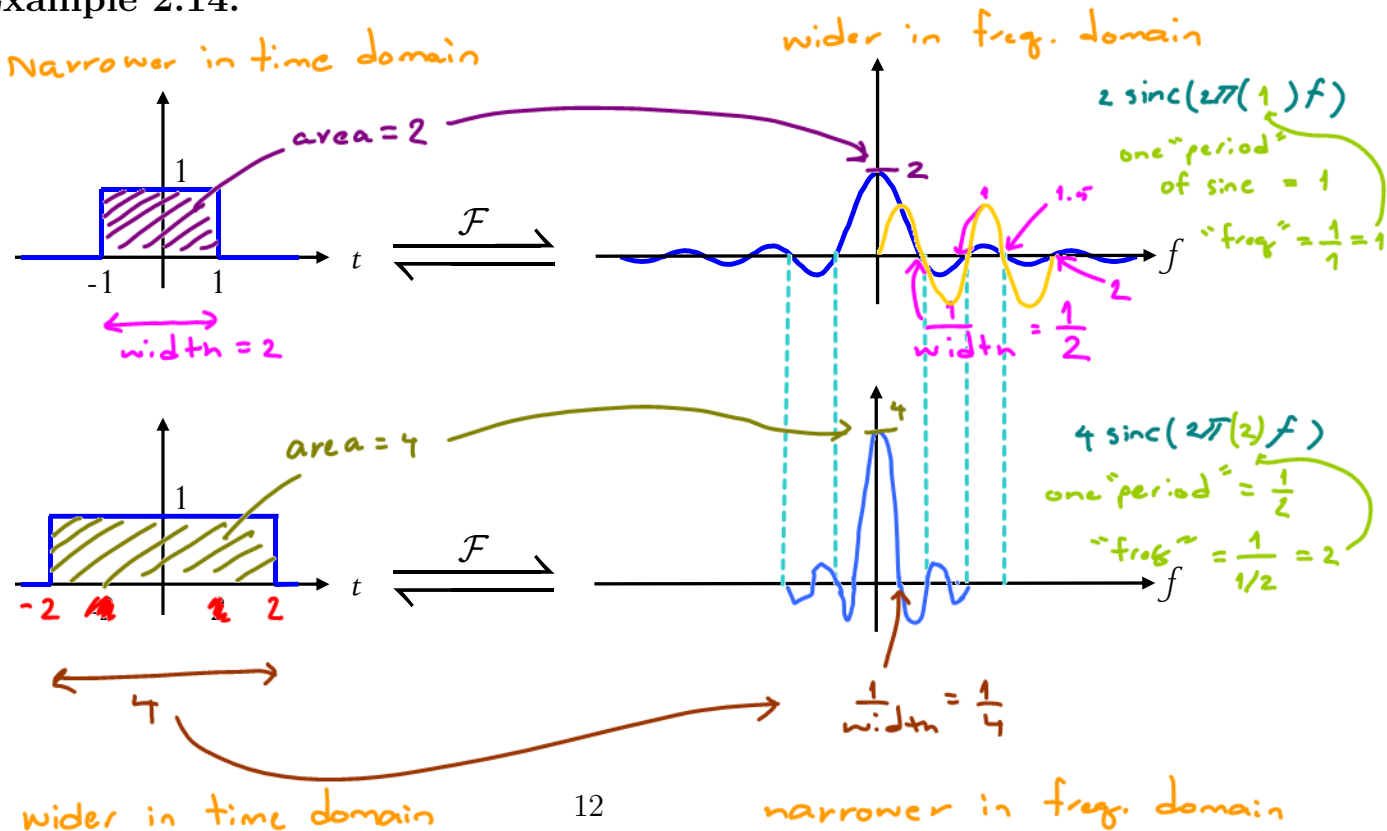 Example 2.14.
Narrower in time domain
wider in freq. domain
area = 2
1
-1
1
t
width = 2
F
2
1
1.5
2
f
1/width = 1/2
2 sinc(2π(1)f)
one "period"
of sine = 1
"freq" = 1/1 = 1
area = 4
1
-2
2
t
4
F
4
f
1/width = 1/4
4 sinc(2π(2)f)
one "period" = 1/2
"freq" = 1/1/2 = 2
wider in time domain
12
narrower in freq. domain